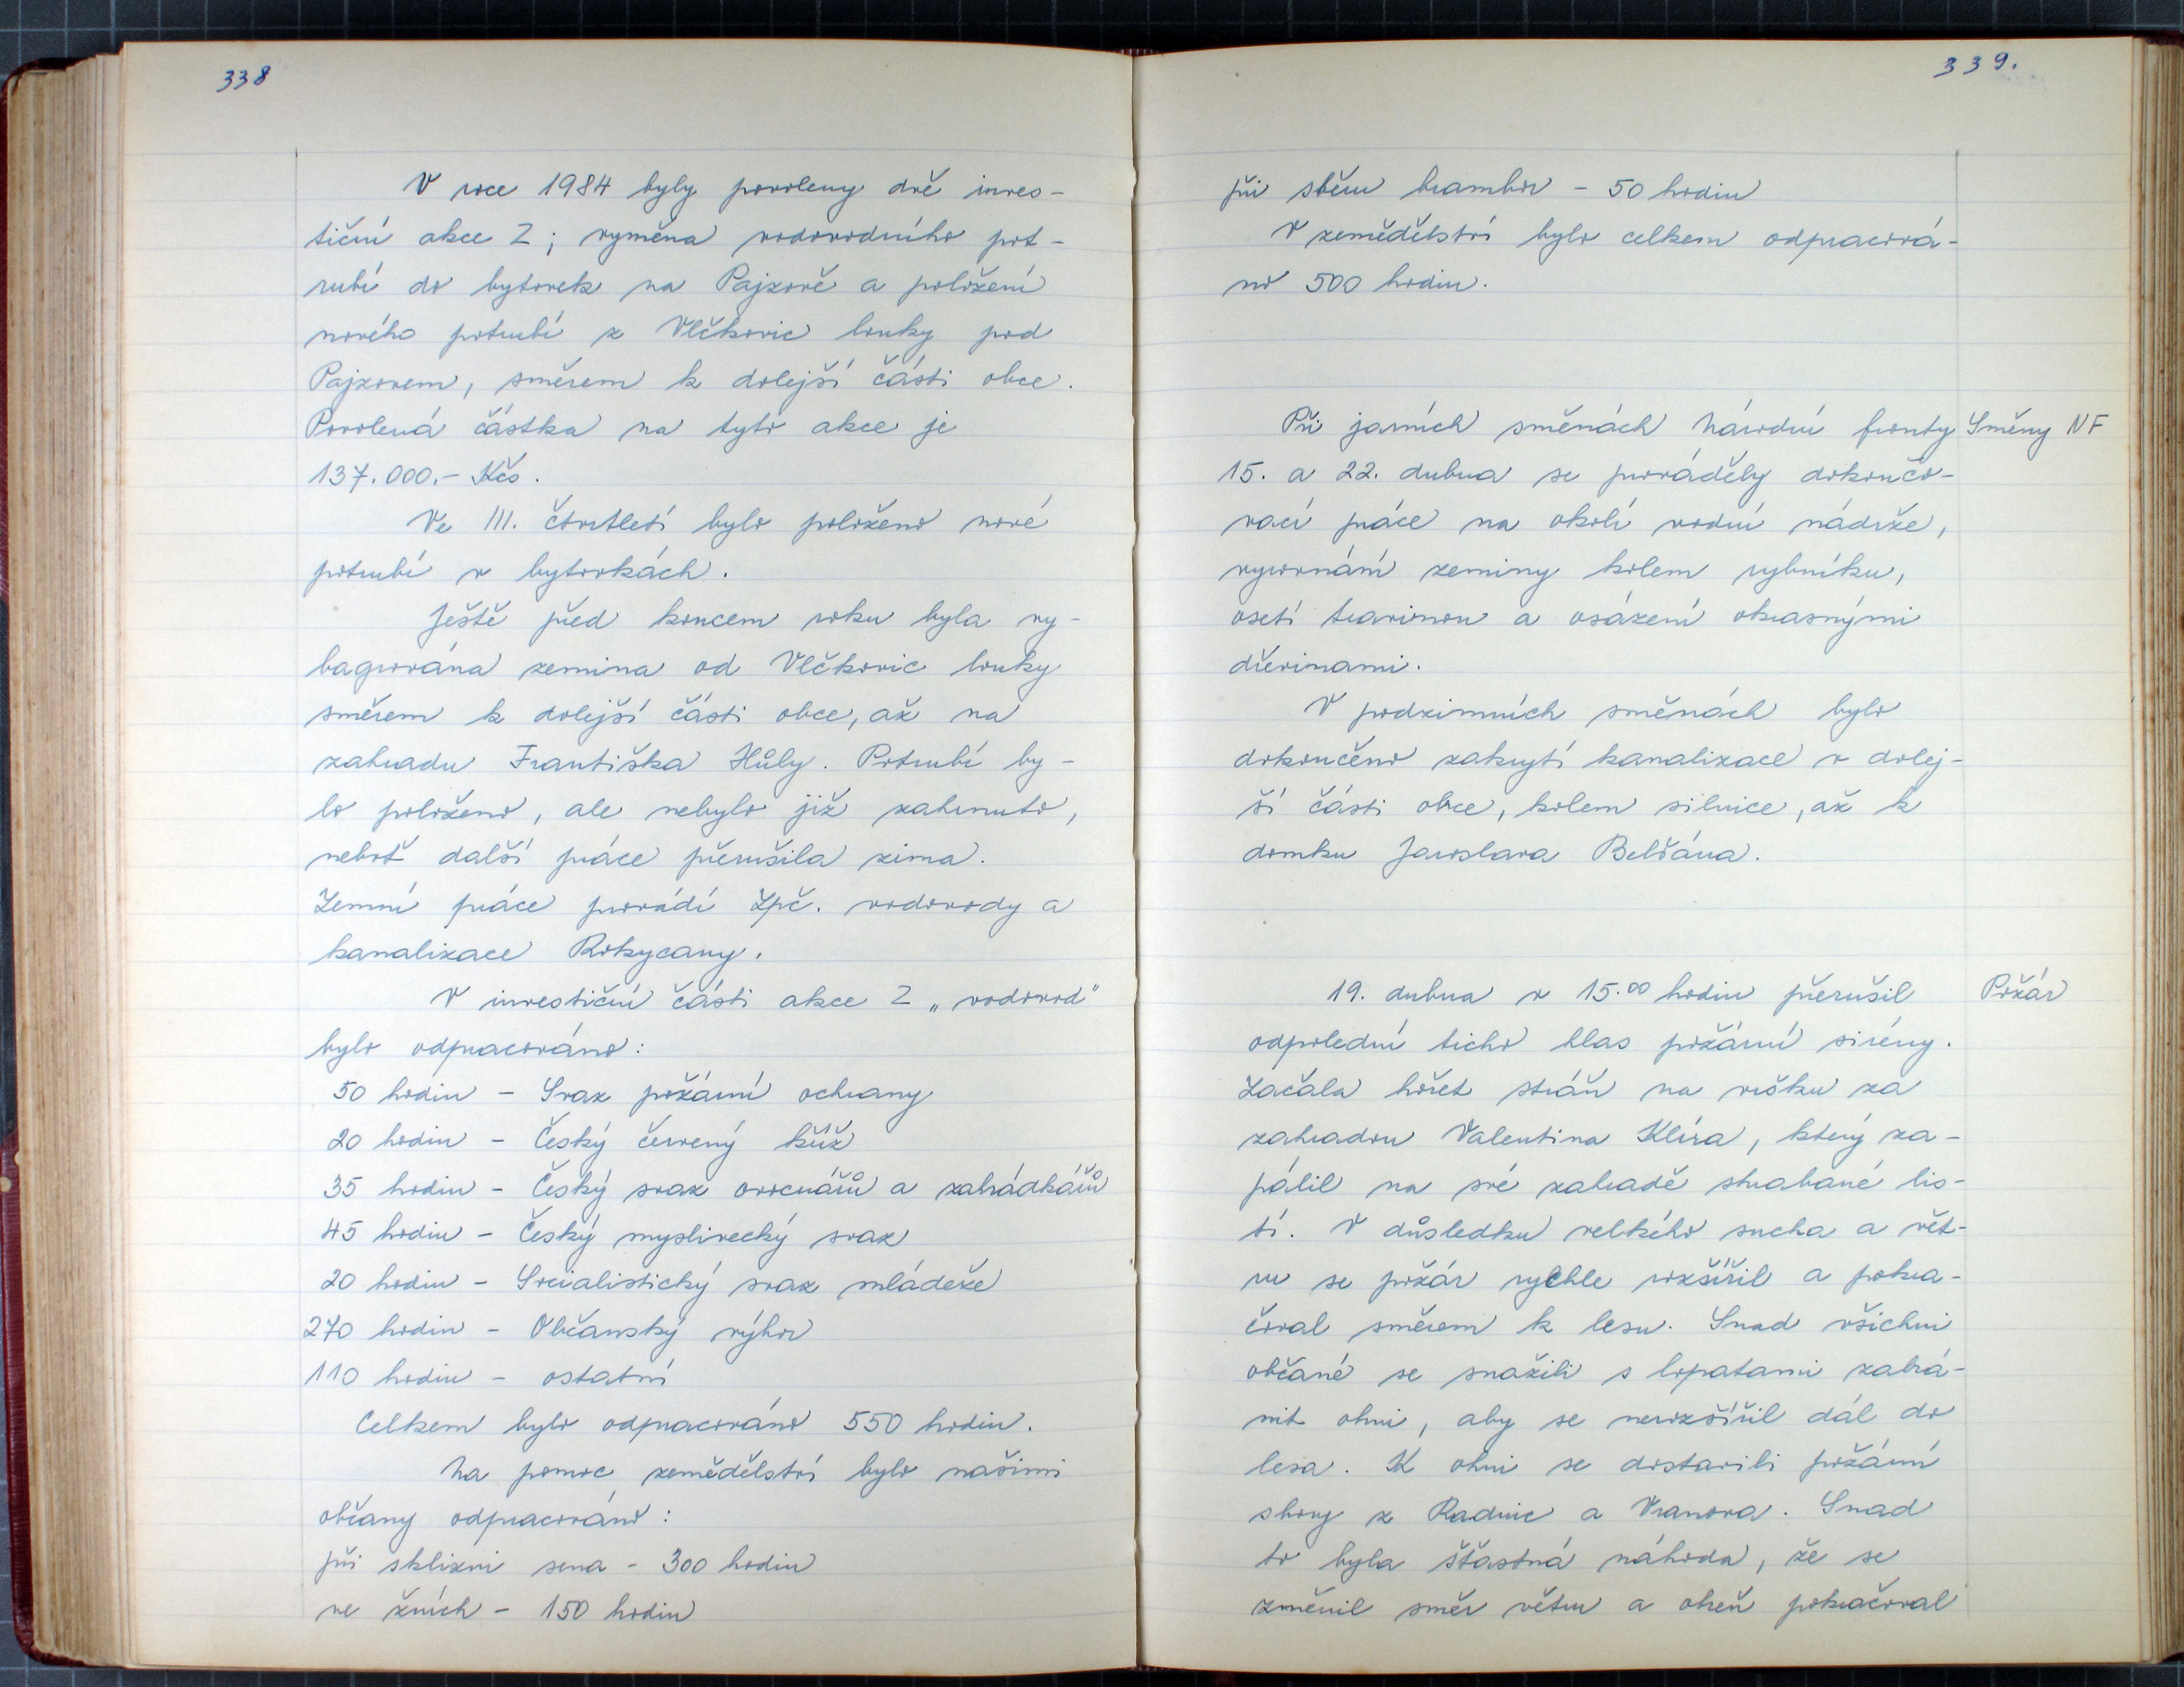 338
V roce 1984 byly povoleny dvě inves-
tiční akce Z; výměna vodovodního pot-
rubí do bytovek na Pajzově a položení
nového potrubí z Vlčkovic louky pod
Pajzovem, směrem k dolejší části obce.
Povolená částka na tyto akce je
137.000.- Kčs.
Ve III. čtvrtletí bylo položeno nové
potrubí v bytovkách.
Ještě před koncem roku byla vy-
bagrována zemina od Vlčkovic louky
směrem k dolejší části obce, až na
zahradu Františka Hůly. Potrubí by-
lo položeno, ale nebylo již zahrnuto,
neboť další práce přerušila zima.
Zemní práce provádí Zpč. vodovody a
kanalizace Rokycany.
V investiční části akce Z „vodovod"
bylo odpracováno:
50 hodin - Svaz požární ochrany
20 hodin - Český červený kříž
35 hodin - Český svaz ovocnářů a zahrádkářů
45 hodin - Český myslivecký svaz
20 hodin - Socialistický svaz mládeže
270 hodin - Občanský výbor
110 hodin - ostatní
Celkem bylo odpracováno 550 hodin.
Na pomoc zemědělství bylo našimi
občany odpracováno:
při sklizni sena - 300 hodin
ve žních - 150 hodin
339.
při sběru brambor - 50 hodin
V zemědělství bylo celkem odpracová-
no 500 hodin.
Při jarních směnách Národní fronty Směny NF
15. a 22. dubna se prováděly dokončo-
vací práce na okolí vodní nádrže,
vyrovnání zeminy kolem rybníku,
osetí travinou a osázení okrasnými
dřevinami.
V podzimních směnách bylo
dokončeno zakrytí kanalizace v dolej-
ší části obce, kolem silnice, až k
domku Jaroslava Belšána.
19. dubna v 15.00 hodin přerušil Požár
odpolední ticho hlas požární sirény.
Začala hořet stráň na vršku za
zahradou Valentina Klíra, který za-
pálil na své zahradě shrabané lis-
tí. V důsledku velkého sucha a vět-
ru se požár rychle rozšířil a pokra-
čoval směrem k lesu. Snad všichni
občané se snažili s lopatami zabrá-
nit ohni, aby se nerozšířil dál do
lesa. K ohni se dostavili požární
sbory z Radnic a Vranova. Snad
to byla šťastná náhoda, že se
změnil směr větru a oheň pokračoval